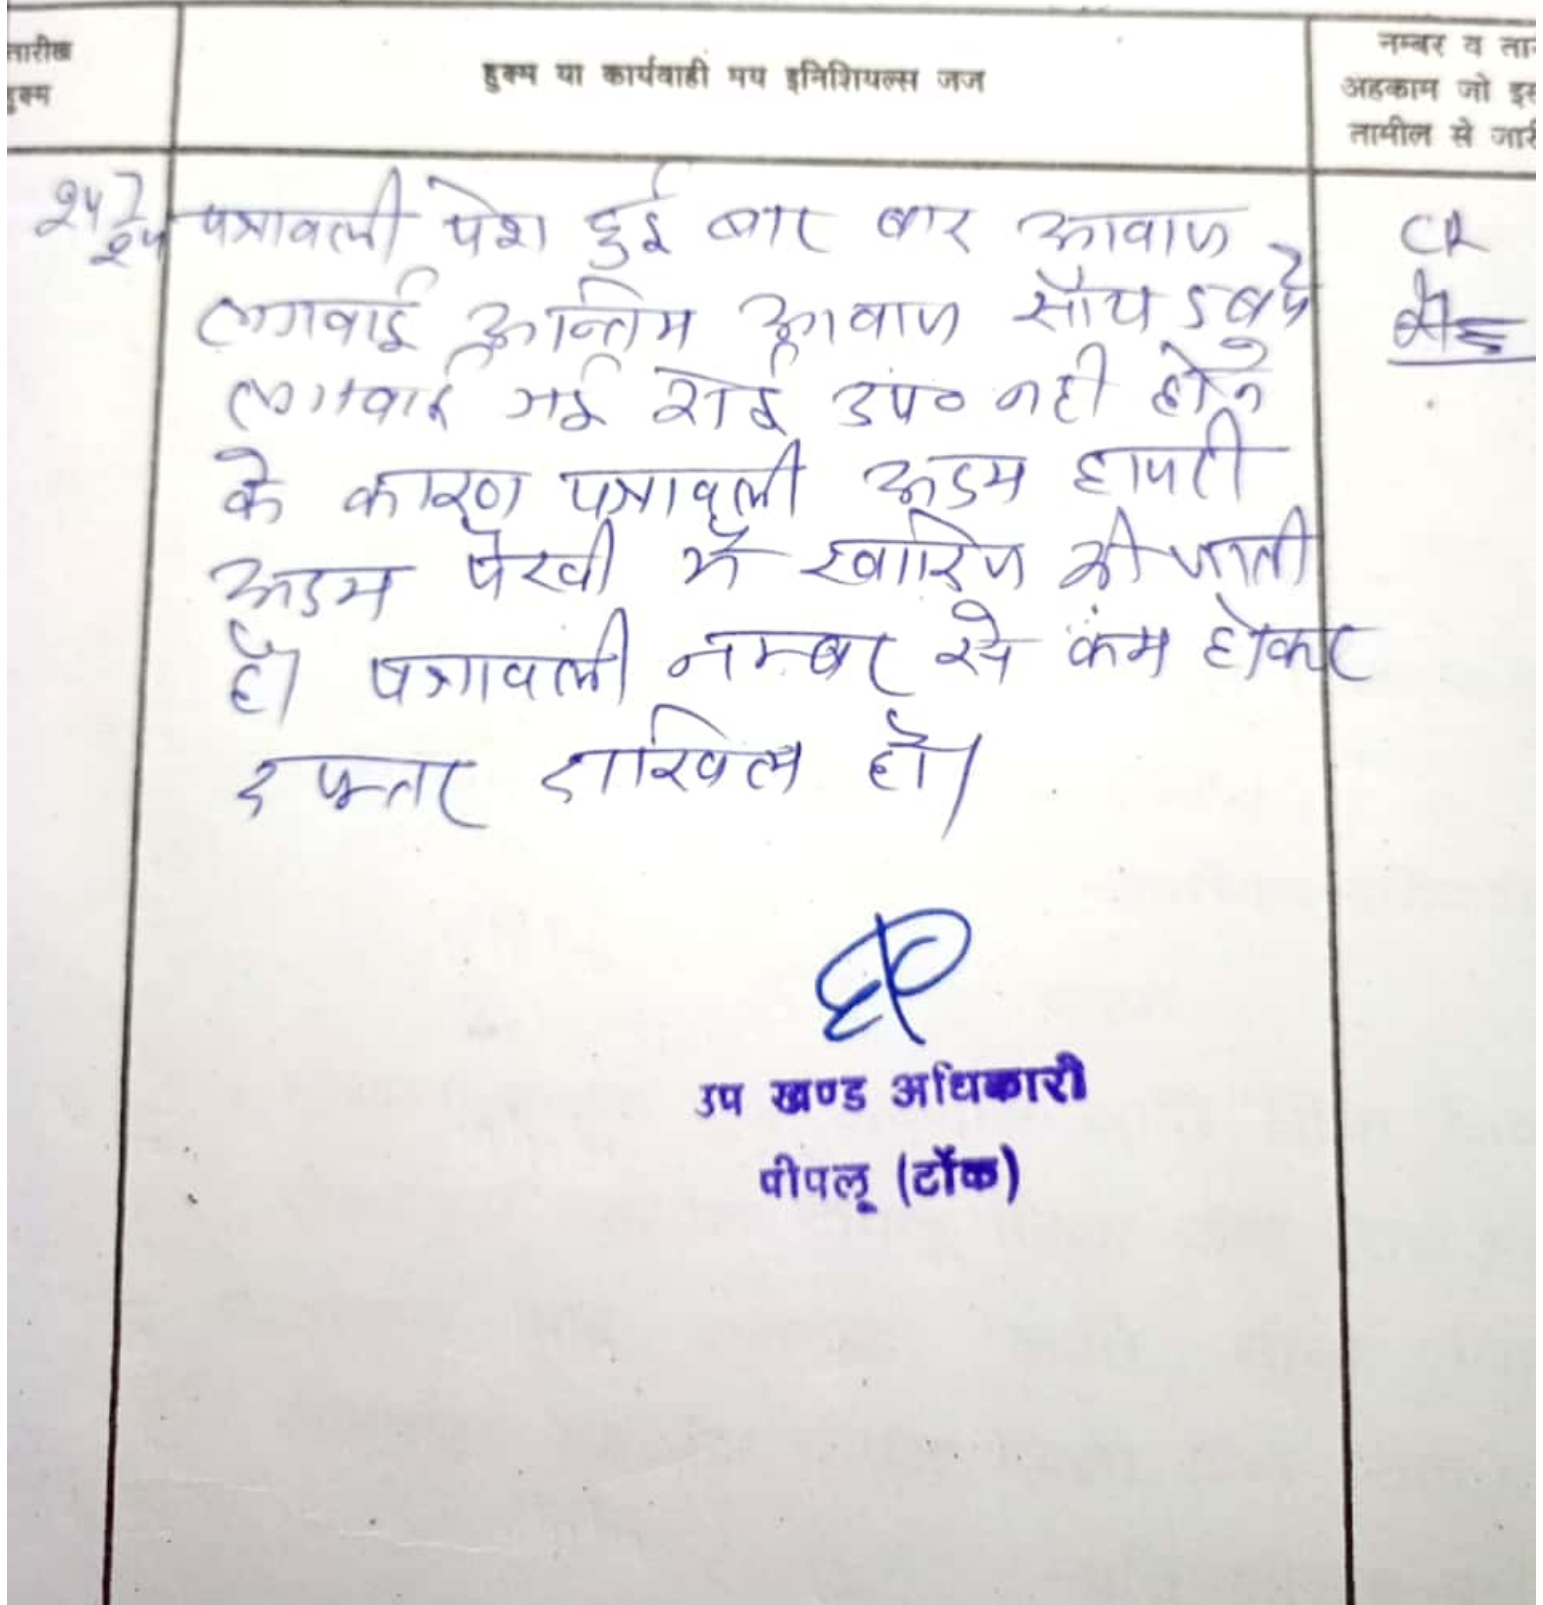 तारीख
हुक्म
हुक्म या कार्यवाही मय इनिशियल्स जज
नम्बर व ता
अहकाम जो इस
तामील से जारी
पत्रावली पेश हुई बार बार आवाज
लगवाई अन्तिम आवाज सॉय 5 बजे
लगवाई गई कोई उप० नही होने
के कारण पत्रावली अडम हापरी
अडम पेरवी में खारिज की जाती
है। पत्रावली नम्बर से कम होकर
दफ्तर दाखिल हो।
उप खण्ड अधिकारी
पीपलू (टोंक)